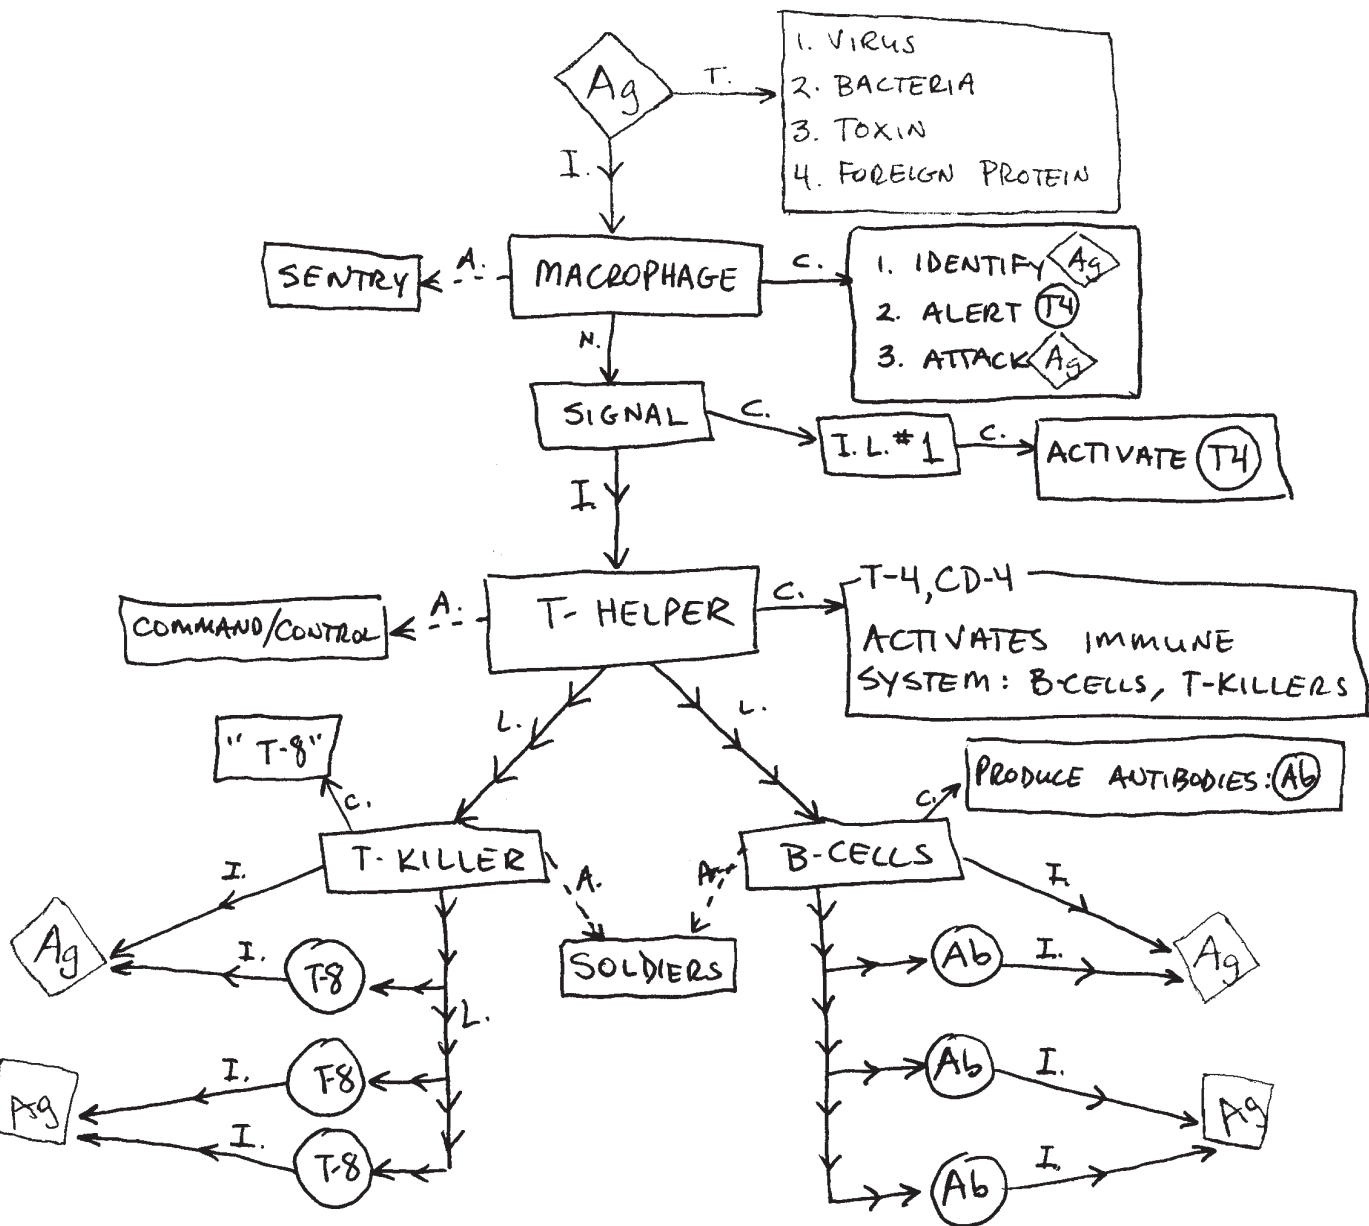 Ag
T.
1. VIRUS
2. BACTERIA
3. TOXIN
4. FOREIGN PROTEIN
I.
SENTRY
A.
MACROPHAGE
C.
1. IDENTIFY Ag
2. ALERT T4
3. ATTACK Ag
N.
SIGNAL
C.
I.L.#1
C.
ACTIVATE T4
I.
COMMAND/CONTROL
A.
T-HELPER
C.
T-4, CD-4
ACTIVATES IMMUNE
SYSTEM: B-CELLS, T-KILLERS
L.
L.
"T-8"
C.
PRODUCE ANTIBODIES: Ab
C.
T-KILLER
B-CELLS
I.
A.
A.
I.
Ag
I.
T-8
SOLDIERS
Ab
I.
Ag
L.
Ag
I.
T-8
Ab
I.
Ag
I.
T-8
Ab
I.